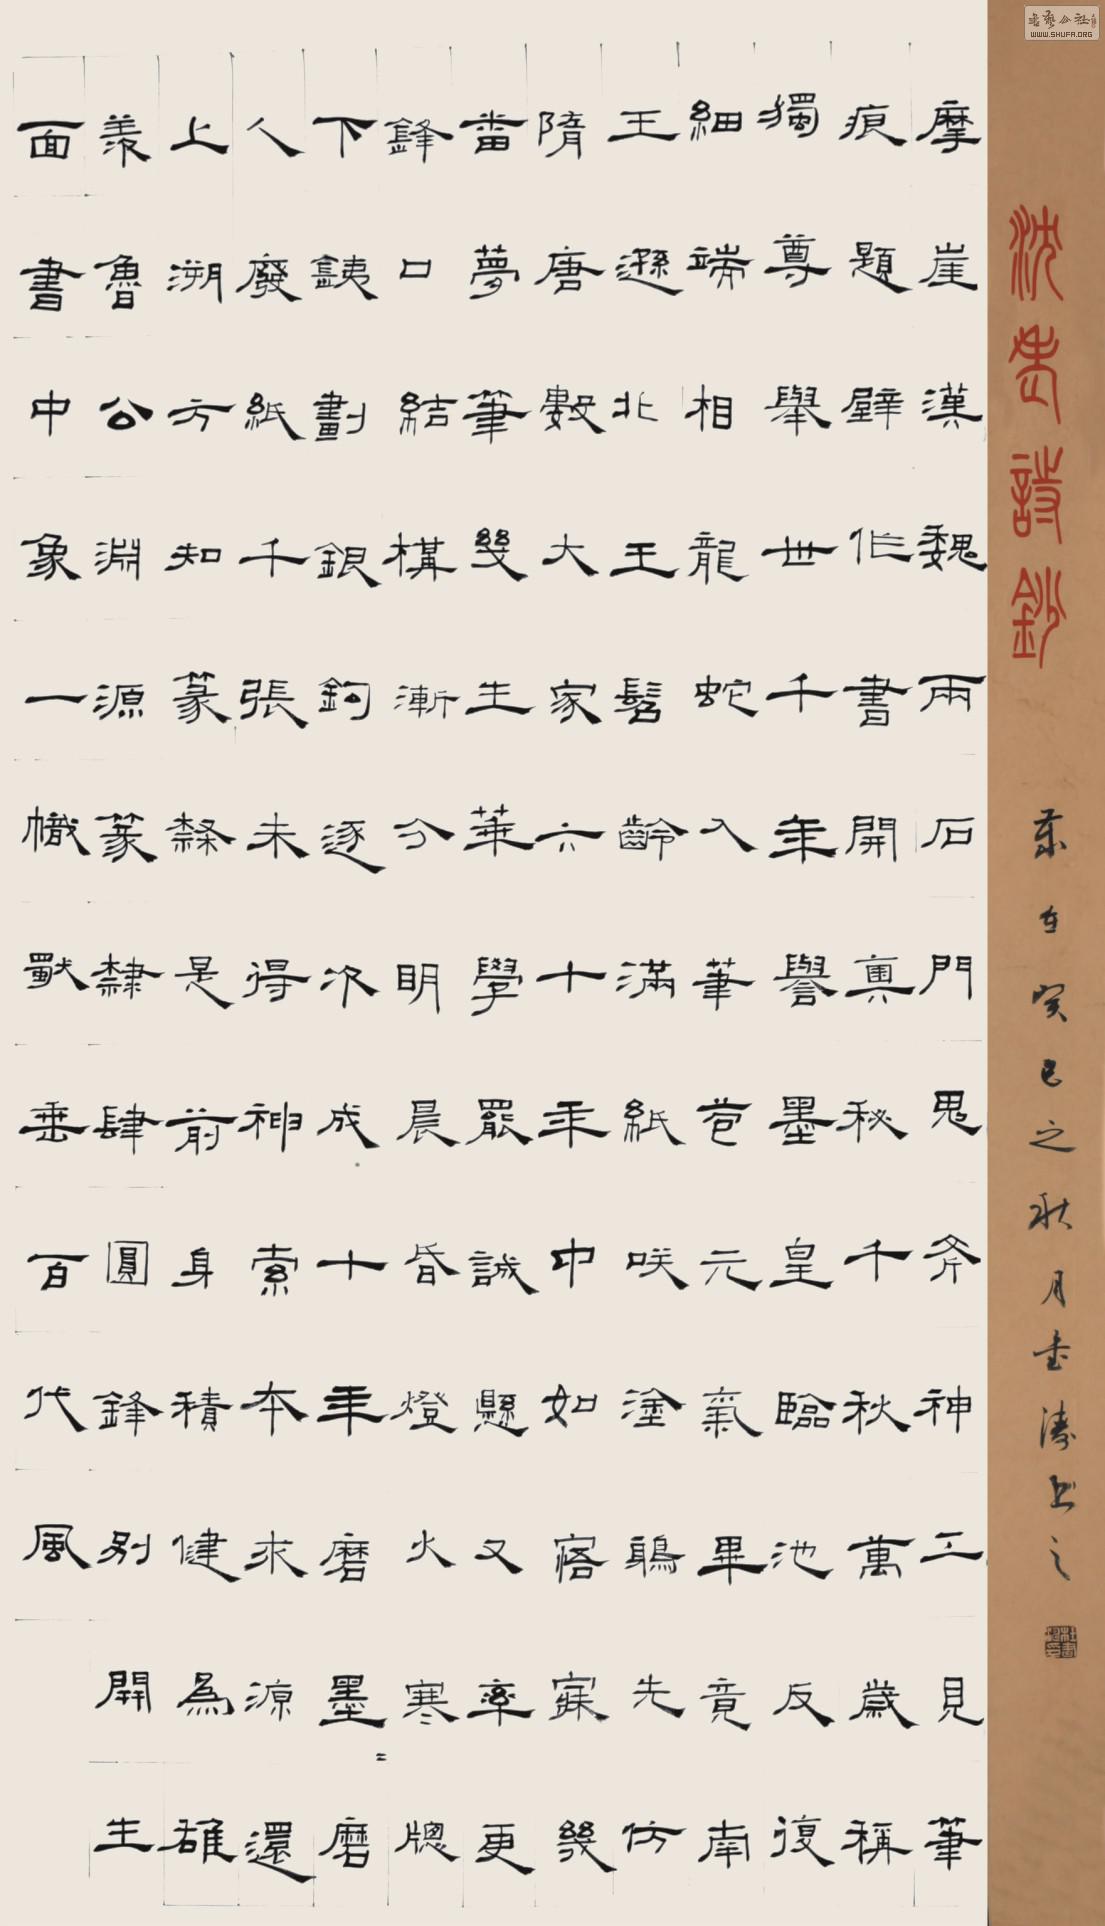 沈老詩鈔
在癸巳之秋月
摩崖漢魏兩石門鬼斧神工見筆
痕題壁作書開奧秘千秋萬歲稱
獨尊舉世千年譽墨皇臨池反復
細端相龍蛇入筆蒼元氣畢竟南
王遜北王髫齡滿紙咲塗鴉先仿
隋唐數大家六十年中如寤寐幾
畨夢筆幾生華學罷誠懸又率更
鋒口結構漸分明晨昏燈火寒牕
下銕劃銀鉤逐次成十年磨墨〻磨
人廢紙千張未得神索本求源還
上溯方知篆隸是前身積健為雄
羨魯公淵源篆隸肆圓鋒別開生
面書中象一幟獨垂百代風
WWW.SHUFA.ORG